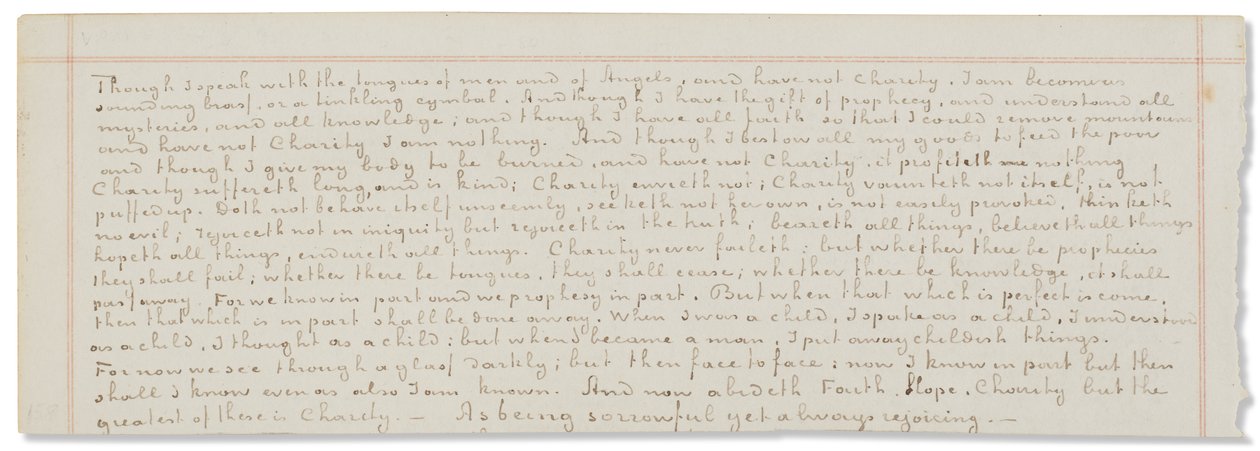 Though I speak with the tongues of men and of Angels, and have not Charity, I am become as
sounding brass, or a tinkling cymbal. And though I have the gift of prophecy, and understand all
mysteries, and all knowledge; and though I have all faith so that I could remove mountains
and have not Charity I am nothing. And though I bestow all my goods to feed the poor
and though I give my body to be burned, and have not Charity, it profiteth me nothing
Charity suffereth long, and is kind; Charity envieth not; Charity vaunteth not itself, is not
puffed up. Doth not behave itself unseemly, seeketh not her own, is not easily provoked, thinketh
no evil; rejoiceth not in iniquity but rejoiceth in the truth; beareth all things, believeth all things
hopeth all things, endureth all things. Charity never faileth: but whether there be prophecies
they shall fail; whether there be tongues, they shall cease; whether there be knowledge, it shall
pass away. For we know in part and we prophesy in part. But when that which is perfect is come,
then that which is in part shall be done away. When I was a child, I spake as a child, I understood
as a child, I thought as a child: but when I became a man, I put away childish things.
For now we see through a glass darkly; but then face to face: now I know in part but then
shall I know even as also I am known. And now abideth Faith, Hope, Charity but the
greatest of these is Charity. — As being sorrowful yet always rejoicing. —